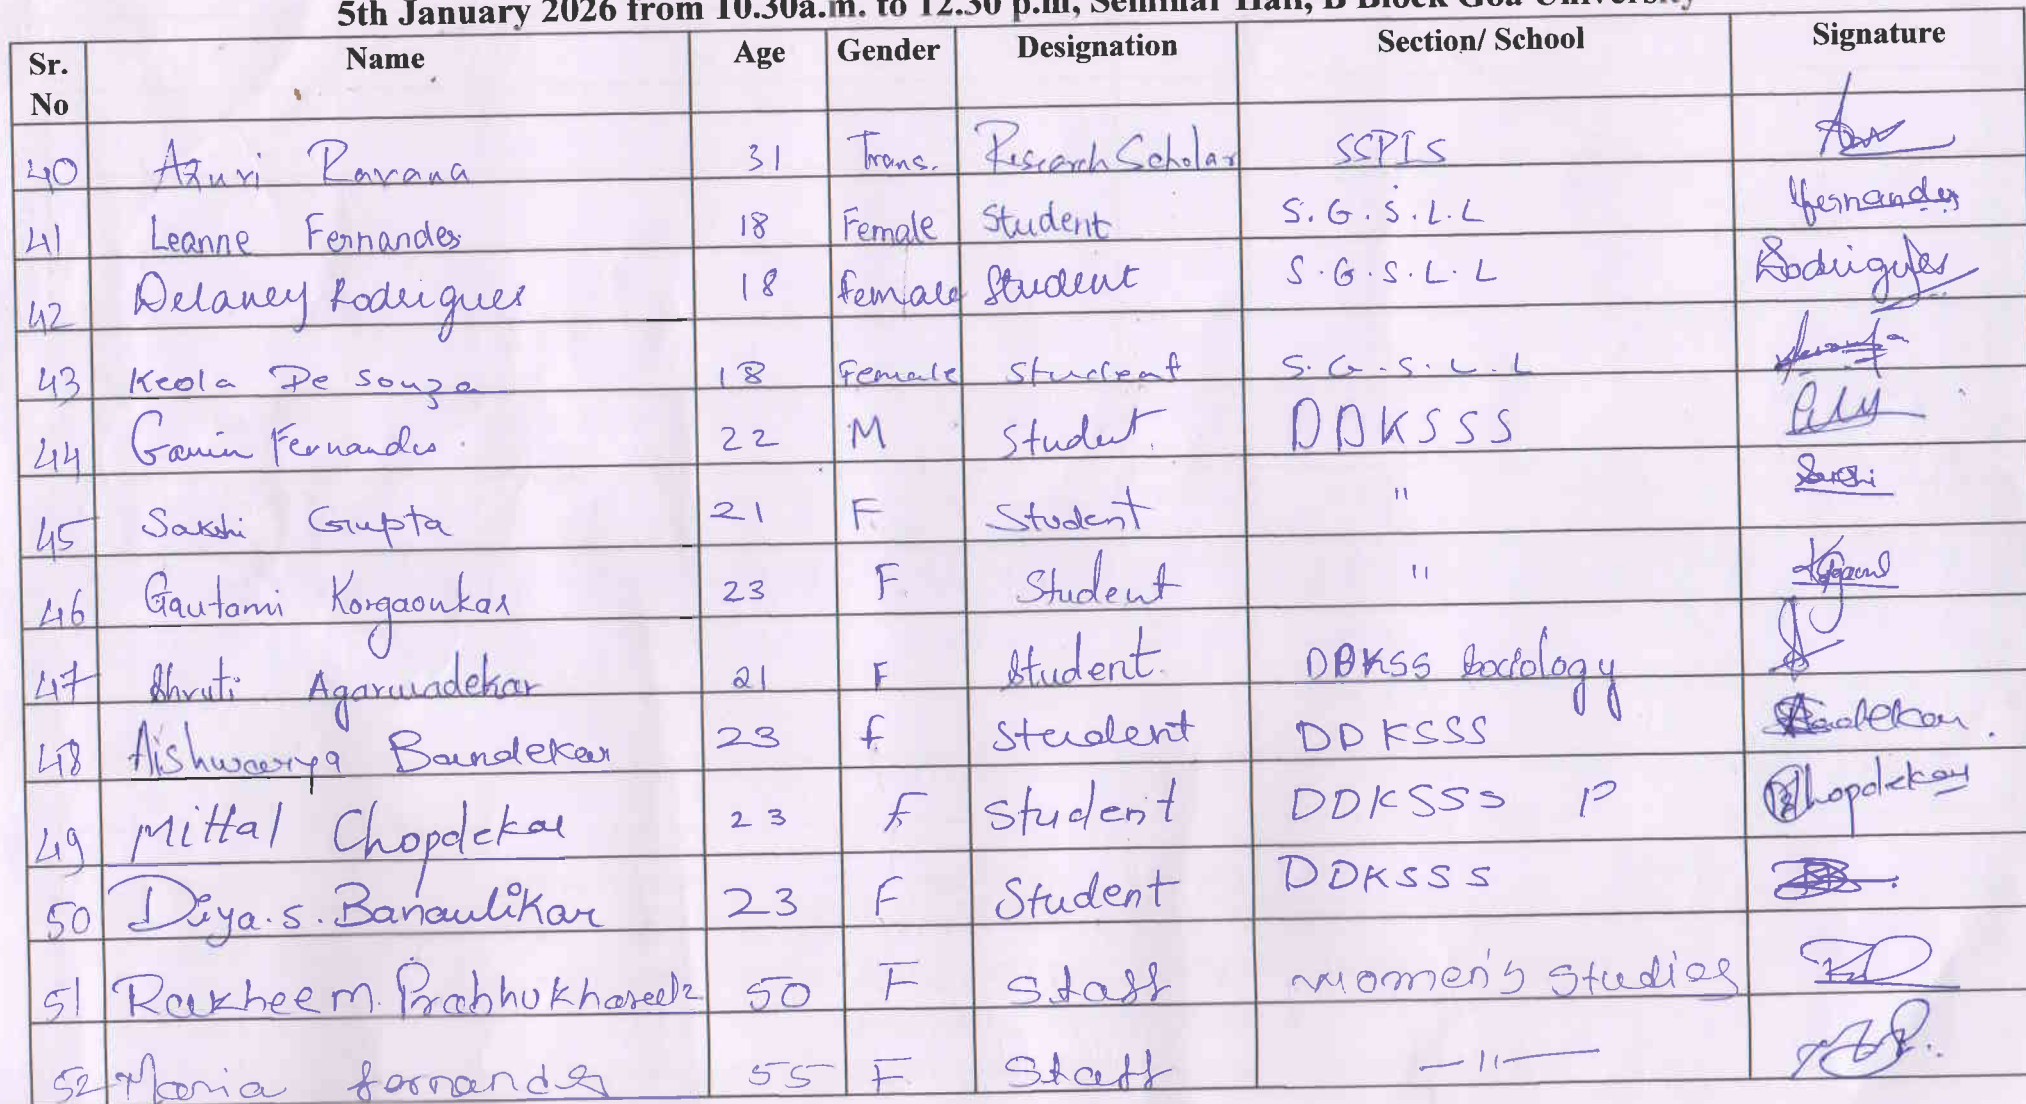 5th January 2026 from 10.30a.m. to 12.30 p.m, Seminar Hall, B Block Goa University
Sr. No Name Age Gender Designation Section/ School Signature
40 Azuri Ravana 31 Trans. Research Scholar SSPIS
41 Leanne Fernandes 18 Female Student S.G.S.L.L fernandes
42 Delaney Rodrigues 18 female Student S.G.S.L.L Rodrigues
43 Keola De Souza 18 Female Student S.G.S.L.L
44 Gavin Fernandes 22 M Student. DDKSSS
45 Sakshi Gupta 21 F Student " Sakshi
46 Gautami Korgaonkar 23 F Student "
47 Shruti Agarwadekar 21 F Student. DDKSS Sociology
48 Aishwarya Bandekar 23 f Student DDKSSS
49 Mittal Chopdekar 23 F Student DDKSSS P Chopdekar
50 Diya.S.Banaulikar 23 F Student DDKSSS
51 Rakhee M. 50 F Staff Women's Studies
52 Maria fernandes 55 F Staff —"—